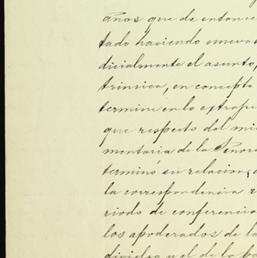 años que de entonce
tado haciendo nueva
dicialmente el asunto,
trinsica, en concepto
termine en lo extraju
que respecto del mis
mentaria de la Señora
terminó su relacion,
la correspondencia
riodo de conferencia
los apoderados de la